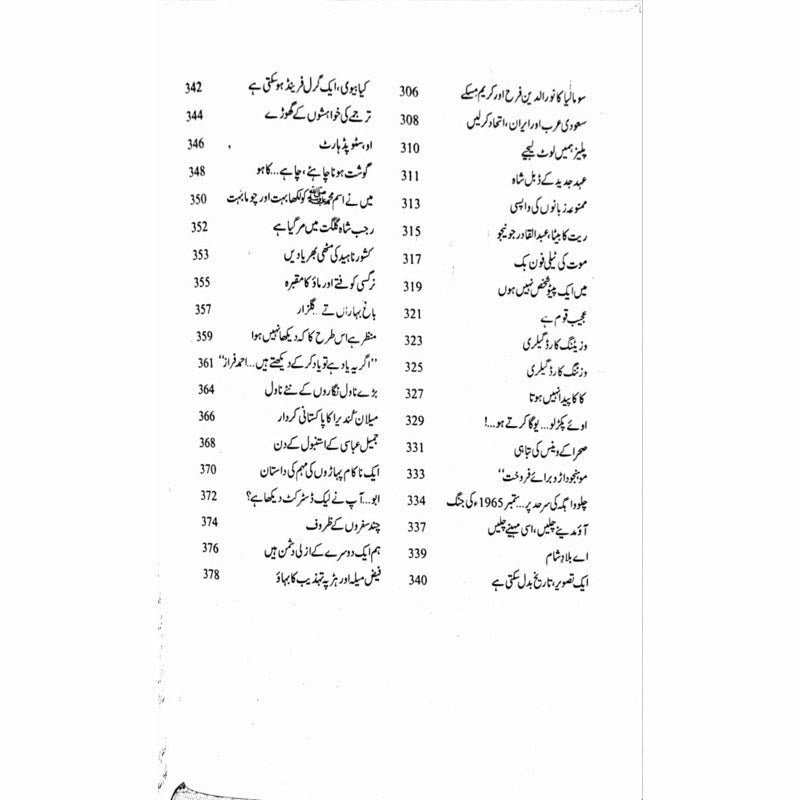 سومالیا کا نورالدین فرح اور کریم مسکے 306
سعودی عرب اور ایران، اتحاد کرلیں 308
پلیز ہمیں لوٹ لیجیے 310
عہد جدید کے ڈبل شاہ 311
ممنوعہ زبانوں کی واپسی 313
ریت کا بیٹا، عبدالقادر جونیجو 315
موت کی ٹیلی فون بک 317
میں ایک پیٹو شخص نہیں ہوں 319
عجیب قوم ہے 321
وزیٹنگ کارڈ گیلری 323
وزٹنگ کارڈ گیلری 325
کاکا پیدا نہیں ہوتا 327
اوئے پکڑلو... یوگا کرتے ہو...! 329
صحرا کے وینس کی تباہی 331
موہنجوداڑو برائے فروخت“ 333
چلو واہگہ کی سرحد پر... ستمبر 1965ء کی جنگ 334
آؤ مدینے چلیں، اسی مہینے چلیں 337
اے بلادِ شام 339
ایک تصویر، تاریخ بدل سکتی ہے 340
کیا بیوی، ایک گرل فرینڈ ہوسکتی ہے 342
ترجمے کی خواہشوں کے گھوڑے 344
او سٹوپڈ ہارٹ 346
گوشت ہونا چاہئے، چاہے... کا ہو 348
میں نے اسم محمدﷺ کو لکھا بہت اور چوما بہت 350
رجب شاہ گلگت میں مر گیا ہے 352
کشور ناہید کی مٹھی بھر یادیں 353
نرگسی کوفتے اور ماؤ کا مقبرہ 355
باغ بہاراں تے... گلزار 357
منظر ہے اس طرح کا کہ دیکھا نہیں ہوا 359
”اگر یہ یاد ہے تو یاد کر کے دیکھتے ہیں... احمد فراز“ 361
بڑے ناول نگاروں کے نئے ناول 364
میلان کندیرا کا پاکستانی کردار 366
جمیل عباسی کے استنبول کے دن 368
ایک ناکام پہاڑوں کی مہم کی داستان 370
ابو... آپ نے لیک ڈسٹرکٹ دیکھا ہے؟ 372
چند سفروں کے ظروف 374
ہم ایک دوسرے کے ازلی دشمن ہیں 376
فیض میلہ اور ہڑپہ تہذیب کا بہاؤ 378